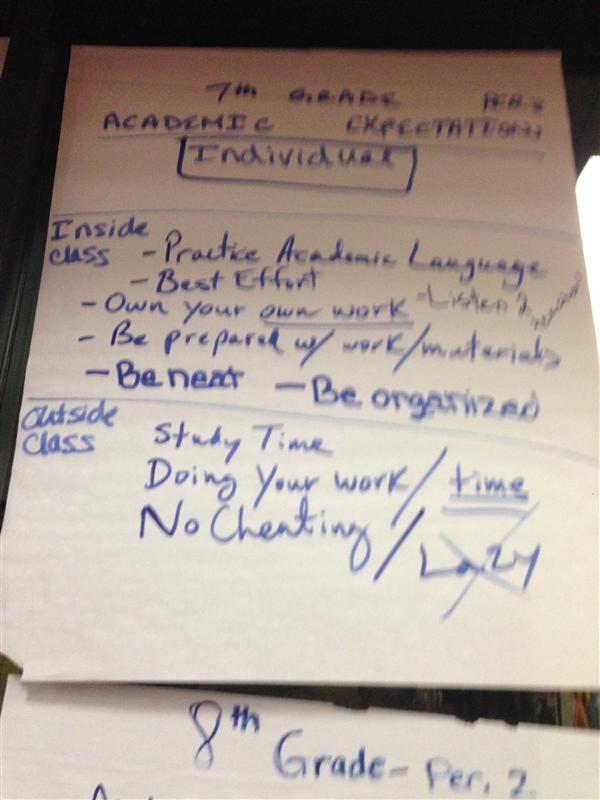 7th GRADE PER.
ACADEMIC EXPECTATIONS
Individual
Inside class
- Practice Academic Language
- Best Effort
- Own your own work - Listen 2
- Be prepared w/ work/materials
- Be neat - Be organized
Outside class
Study Time
Doing Your work / time
No Cheating / Lazy
8th Grade - Per. 2